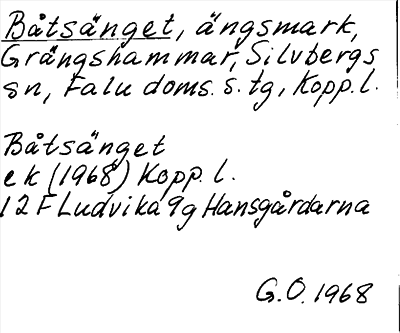 Båtsänget, ängsmark,
Grängshammar, Silvbergs
sn, Falu doms. s. tg, Kopp. l.
Båtsänget
ek (1968) Kopp. l.
12 F Ludvika 9g Hansgårdarna
G.O. 1968